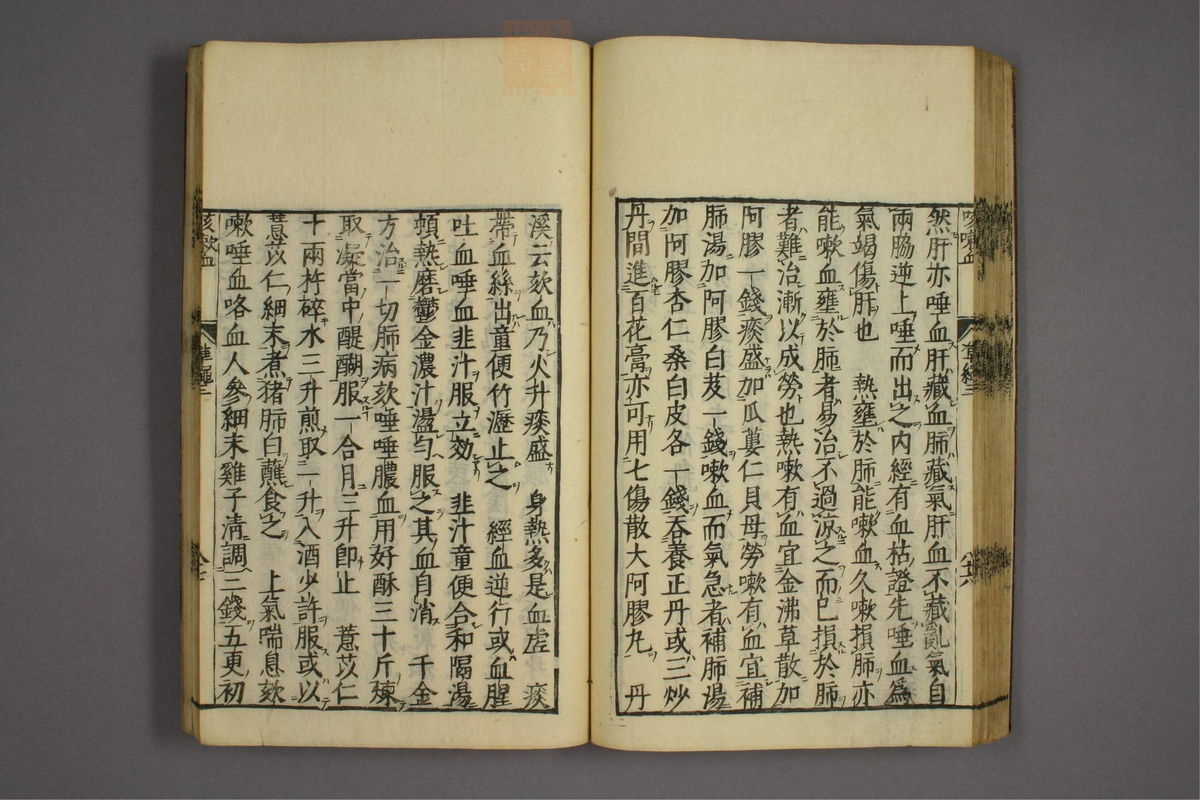 然肝亦唾血肝藏血肺藏氣肝血不藏亂氣自
兩脇逆上唾而出之内經有血枯證先唾血爲
氣竭傷肝也　熱壅於肺能嗽血久嗽損肺亦
能嗽血壅於肺者易治不過涼之而已損於肺
者難治漸以成勞也熱嗽有血宜金沸草散加
阿膠一錢痰盛加瓜蔞仁貝母勞嗽有血宜補
肺湯加阿膠白芨一錢嗽血而氣急者補肺湯
加阿膠杏仁桑白皮各一錢吞養正丹或三炒
丹間進百花膏亦可用七傷散大阿膠丸　丹
溪云欬血乃火升痰盛　身熱多是血虛　痰
帶血絲出童便竹瀝止之　經血逆行或血腥
吐血唾血韭汁服立効　韭汁童便合和隔湯
頓熱磨鬱金濃汁濫勻服之其血自消　千金
方治一切肺病欬唾唾膿血用好酥三十斤煉
取凝當中醍醐服一合月三升即止　薏苡仁
十兩杵碎水三升煎取一升入酒少許服或以
薏苡仁細末煮猪肺白蘸食之　上氣喘息欬
嗽唾血咯血人參細末雞子清調三錢五更初
欬嗽血